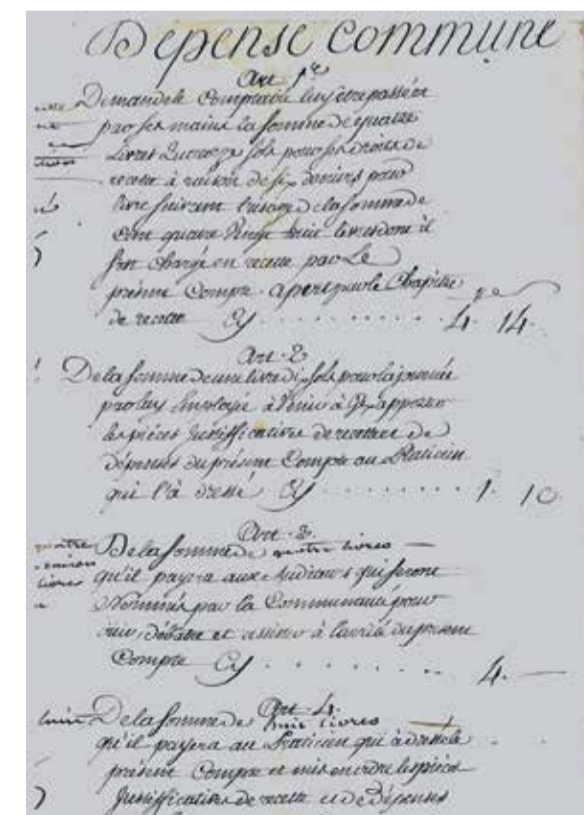 Depense commune
Art 1er
Demande le Comptable luy etre passée
par ses mains la somme de quatre
Livres quatorze sols pour ses droits de
recette à raison de six deniers pour
livre suivant l'usage de la somme de
cent quatre vingt huit livres dont il
s'est chargé en recette par Le
présent Compte apert par le Chapitre
de recette Cy 4. 14.
Art. 2
De la somme d'une livre dix sols pour la journée
par luy Employée à Venir à apporter
les piéces Justifficatives de recette et de
dépense du présent Compte au Praticien
qui l'à dressé Cy 1. 10
Art. 3.
De la somme de quatre livres
qu'il payera aux Auditeurs qui seront
Nommés par la Communauté pour
ouir, débattre et assister à du présent
Compte Cy 4.
Art. 4.
De la somme de huit livres
qu'il payera au Praticien qui à dressé le
présent Compte et mis en ordre les piéces
Justifficatives de recette et de Dépenses